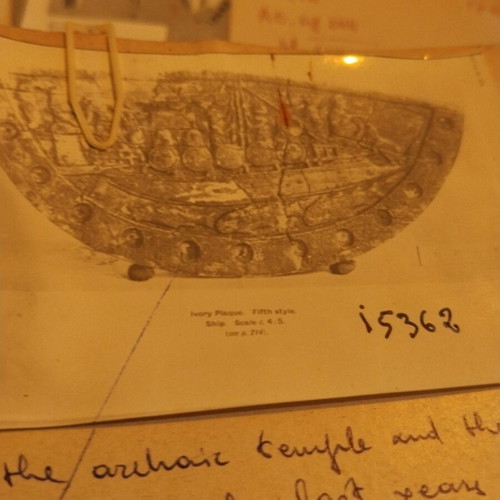 Ivory Plaque. Fifth style.
Ship. Scale c. 4:5.
(see p. 214).
i5362
the archaic temple and the
last